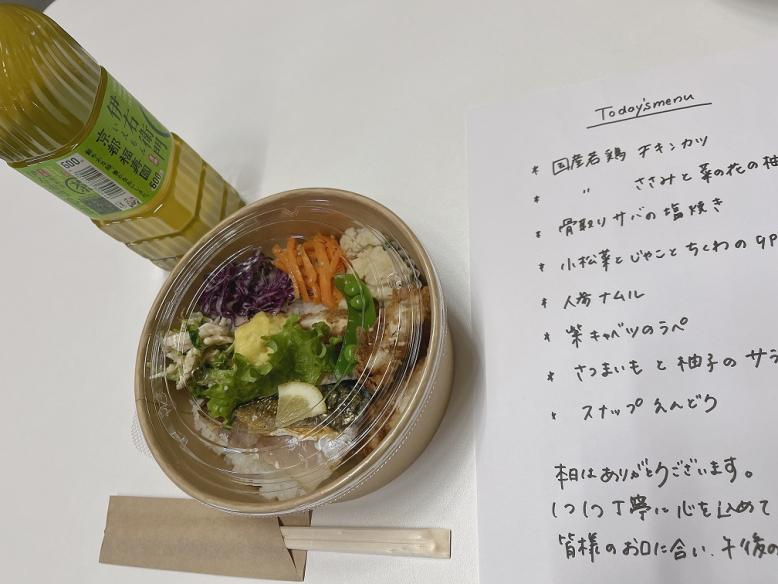 伊右衛門
いえもん
京都福寿園
600
Today's menu
* 国産若鶏 チキンカツ
* 〃 ささみと菜の花の柚
* 骨取りサバの塩焼き
* 小松菜とじゃことちくわの
* 人参ナムル
* 紫キャベツのラペ
* さつまいもと柚子のサラ
* スナップえんどう
本日はありがとうございます。
1つ1つ丁寧に心を込めて
皆様のお口に合い、午後の